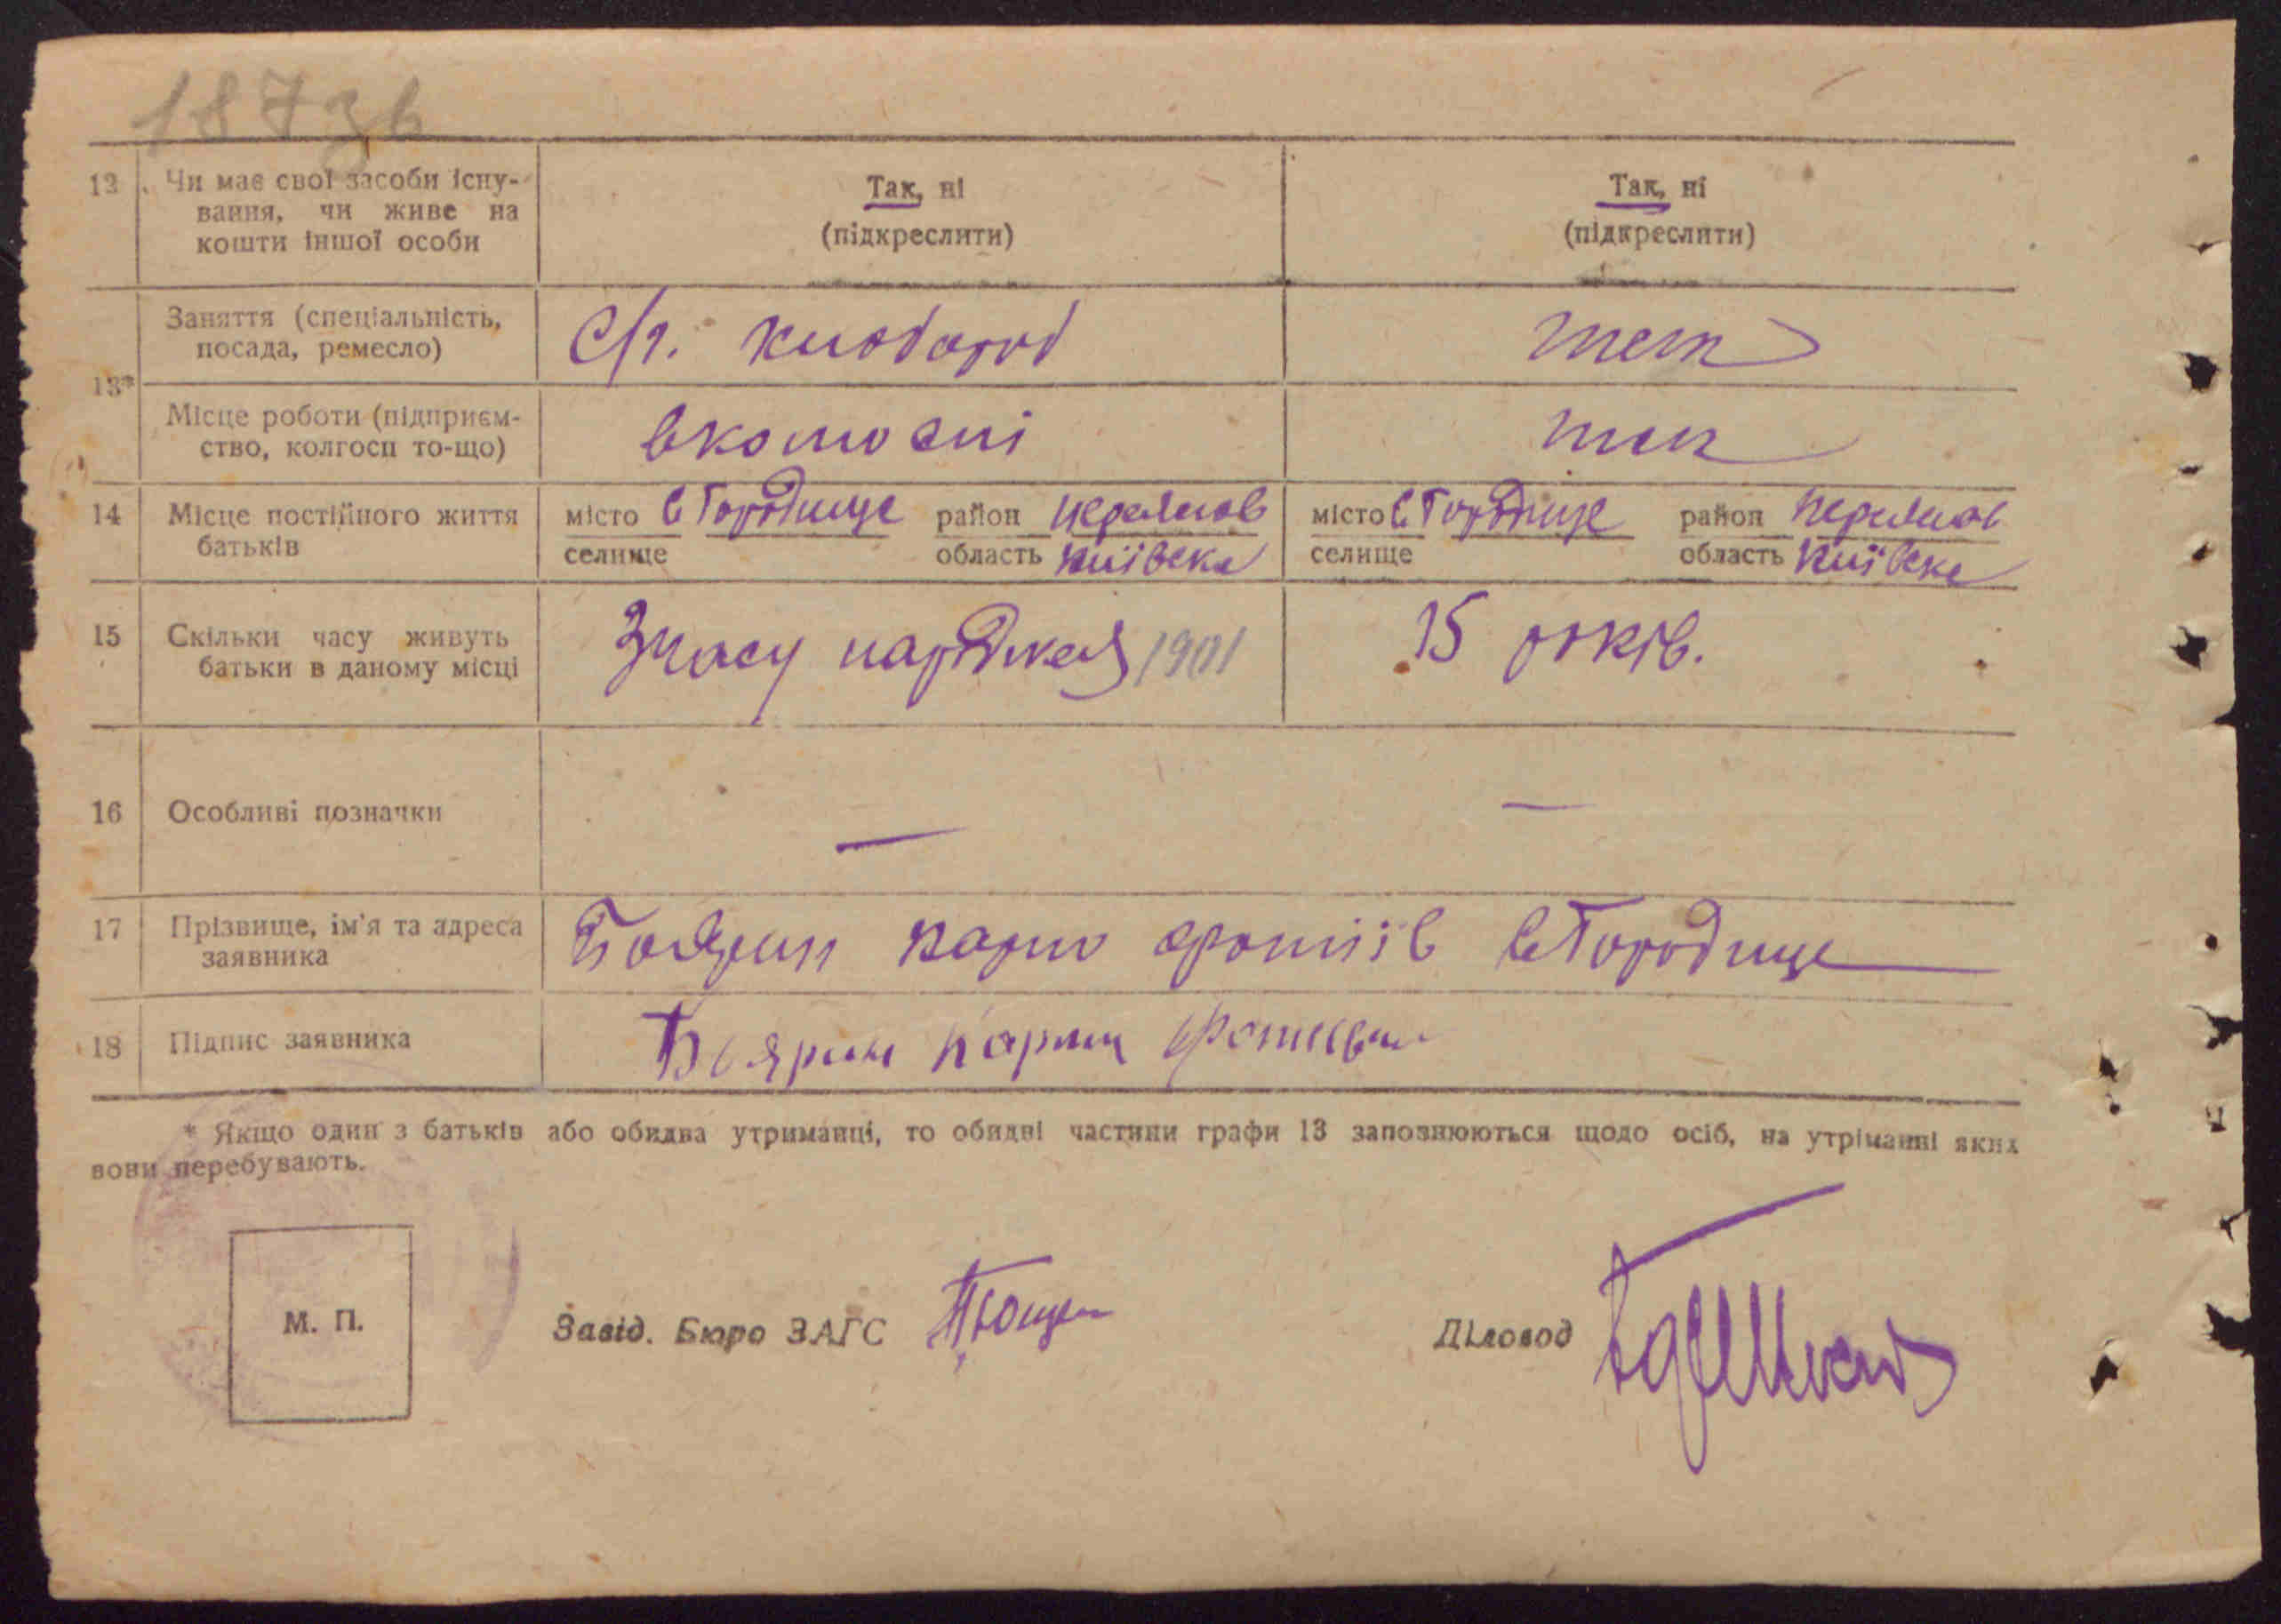 187зв
12 Чи має свої засоби існу-
вання, чи живе на
кошти іншої особи
Так, ні
(підкреслити)
Так, ні
(підкреслити)
13*
Заняття (спеціальність,
посада, ремесло)
с/г.
Місце роботи (підприєм-
ство, колгосп то-що)
14 Місце постійного життя
батьків
місто с Городище район
селище область Київска
місто с Городище район
селище область Київска
15 Скільки часу живуть
батьки в даному місці
З часу народжен 1901
15 років.
16 Особливі позначки
—
—
17 Прізвище, ім'я та адреса
заявника
Боярин с Городище
18 Підпис заявника
Боярин
* Якщо один з батьків або обидва утриманці, то обидві частини графи 13 заповнюються щодо осіб, на утріманні яких
вони перебувають.
М. П.
Завід. Бюро ЗАГС
Діловод